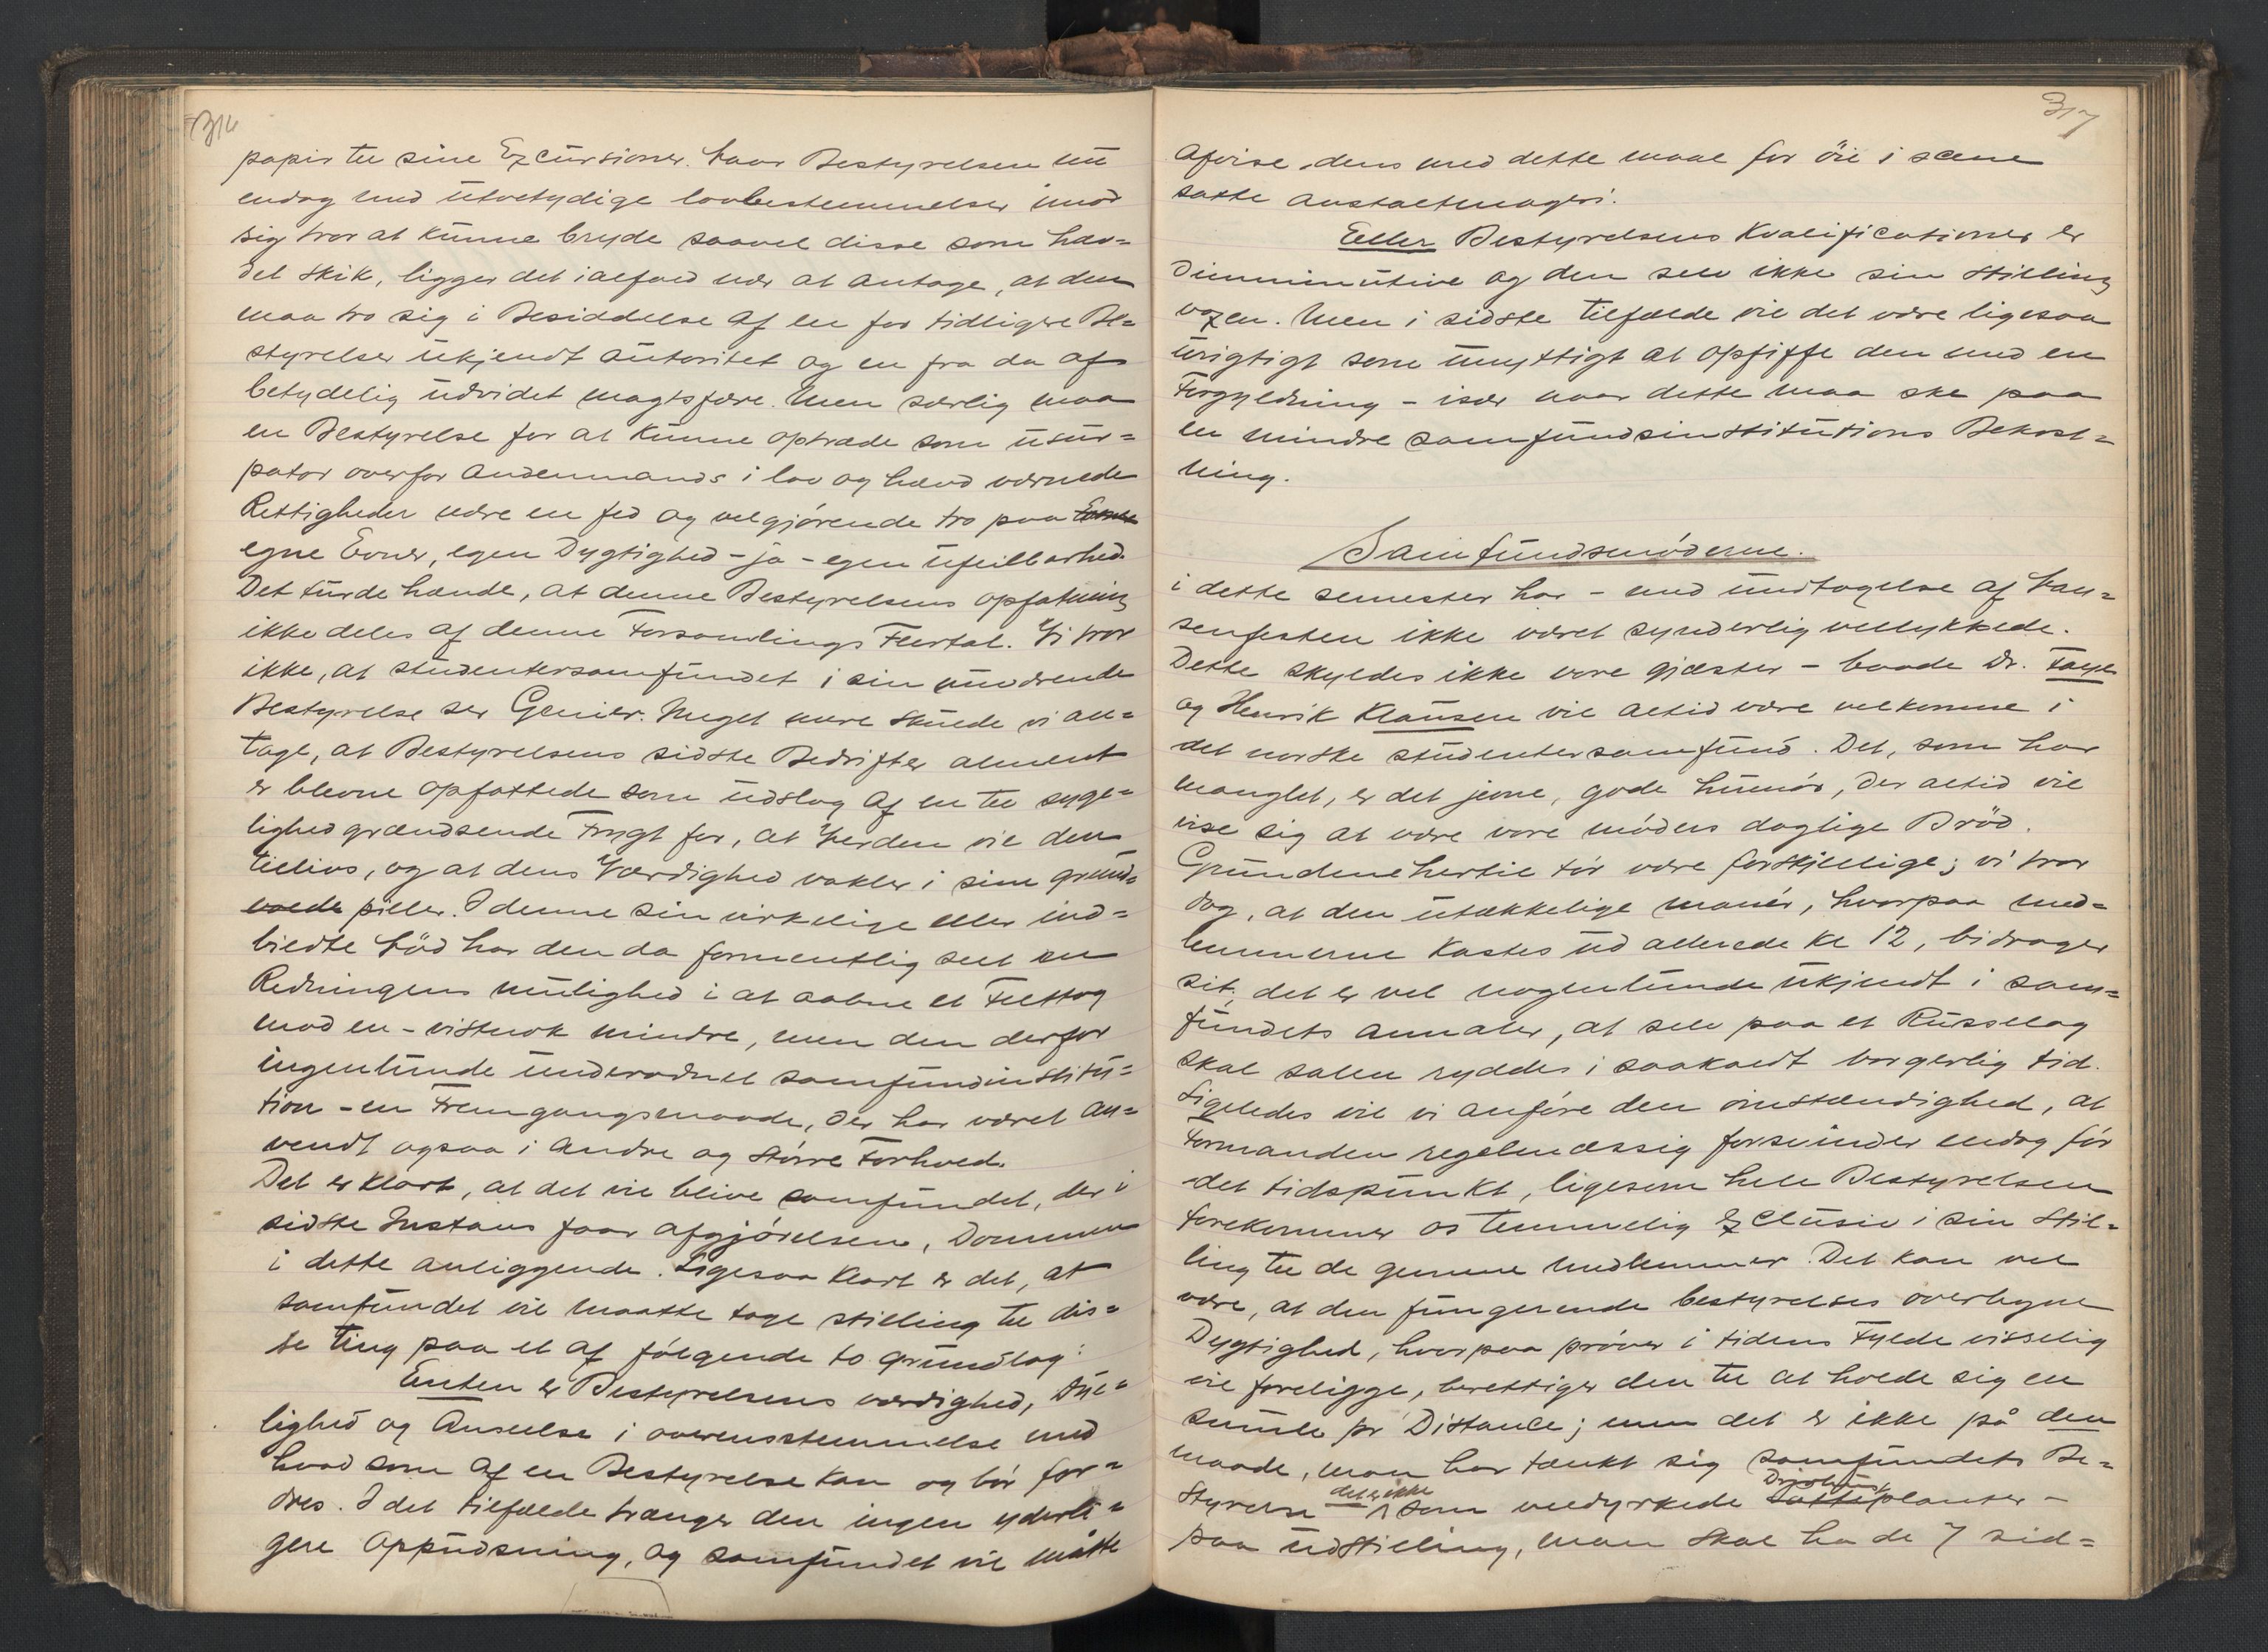 316
papir til sine Excursioner. Naar Bestyrelsen nu
endog med utvetydige lovbestemmelser imod
sig tror at kunne bryde saavel disse som hæv=
det skik, ligger det ialfald nær at antage, at den
maa tro sig i Besiddelse af en for tidligere Be=
styrelser ukjendt autoritet og en fra da af
betydelig udvidet magtsfære. Men særlig maa
en Bestyrelse for at kunne optræde som usur=
pator overfor andenmands i lov og hævd værnede
Rettigheder nære en fed og velgjørende tro paa
egne Evner, egen Dygtighed – ja – egen ufeilbarhed.
Det turde hænde, at denne Bestyrelsens opfatning
ikke deles af denne Forsamlings Flertal. Vi tror
ikke, at studentersamfundet i sin nuværende
Bestyrelse ser Genier. Meget mere skulde vi an=
tage, at Bestyrelsens sidste Bedrifter alment
er blevne opfattede som udslag af en til syge=
lighed grændsende Frygt for, at Verden vil den
tillivs, og at dens Værdighed vakler i sine grund=
volde piller. I denne sin virkelige eller ind=
bildte Nød har den da formentlig seet en
Redningens mulighed i at aabne et Felttog
mod en – vistnok mindre, men den derfor
ingenlunde underordnet samfundinstitu=
tion – en Fremgangsmaade, der har været an=
vendt ogsaa i andre og större Forhold.
Det er klart, at det vil blive samfundet, der i
sidste Instans faar afgjørelsen, Dommen
i dette anliggende. Ligesaa klart er det, at
samfundet vil maatte tage stilling til dis=
se ting paa et af følgende to grundlag:
Enten er Bestyrelsens værdighed, Due=
lighed og Anseelse i overensstemmelse med
hvad som af en Bestyrelse kan og bör for=
dres. I det tilfælde trænger den ingen yderli=
gere Oppudsning, og samfundet vil måtte
317
afvise dens med dette maal for öie i scene
satte anstaltmageri.
Eller Bestyrelsens Kvalifikationer er
Dimminutive og den selv ikke sin Stilling
voxen. Men i sidste Tilfælde vil det være ligesaa
urigtigt som unyttigt at opfiffe den med en
Forgyldning – især naar dette maa ske paa
en mindre samfundsinstitutions Bekost=
ning.
Samfundsmøderne.
i dette semester har – med undtagelse af Nan=
senfesten ikke været synderlig vellykkede.
Dette skyldes ikke vore gjæster – baade Dr. Faye
og Henrik Klausen vil altid være velkomne i
det norske studentersamfund. Det, som har
manglet, er det jevne, gode humør, der altid vil
vise sig at være vore møders daglige Brød.
Grundene hertil tör være forskjellige; vi tror
dog, at den utækkelige manér, hvorpaa med=
lemmerne kastes ud allerede kl 12, bidrager
sit, det er vel nogenlunde ukjendt i sam=
fundets annaler, at selv paa et Russelag
skal salen ryddes i saakaldt borgerlig tid.
Ligeledes vil vi anføre den omstændighed, at
Formanden regelmæssig forsvinder endog før
det tidspunkt, ligesom hele Bestyrelsen
forekommer os temmelig Exclusiv i sin Stil=
ling til de gemene medlemmer. Det kan vel
være, at den fungerende bestyrelses overlegne
Dygtighed, hvorpaa prøver i tidens Fylde visselig
vil foreligge, berettiger den til at holde sig en
smule pr Distance; men det er ikke på den
maade, man har tænkt sig samfundets Be=
styrelse – det er ikke som veldyrkede Drivhusplanter –
paa udstilling, man skal ha de 7 sid=